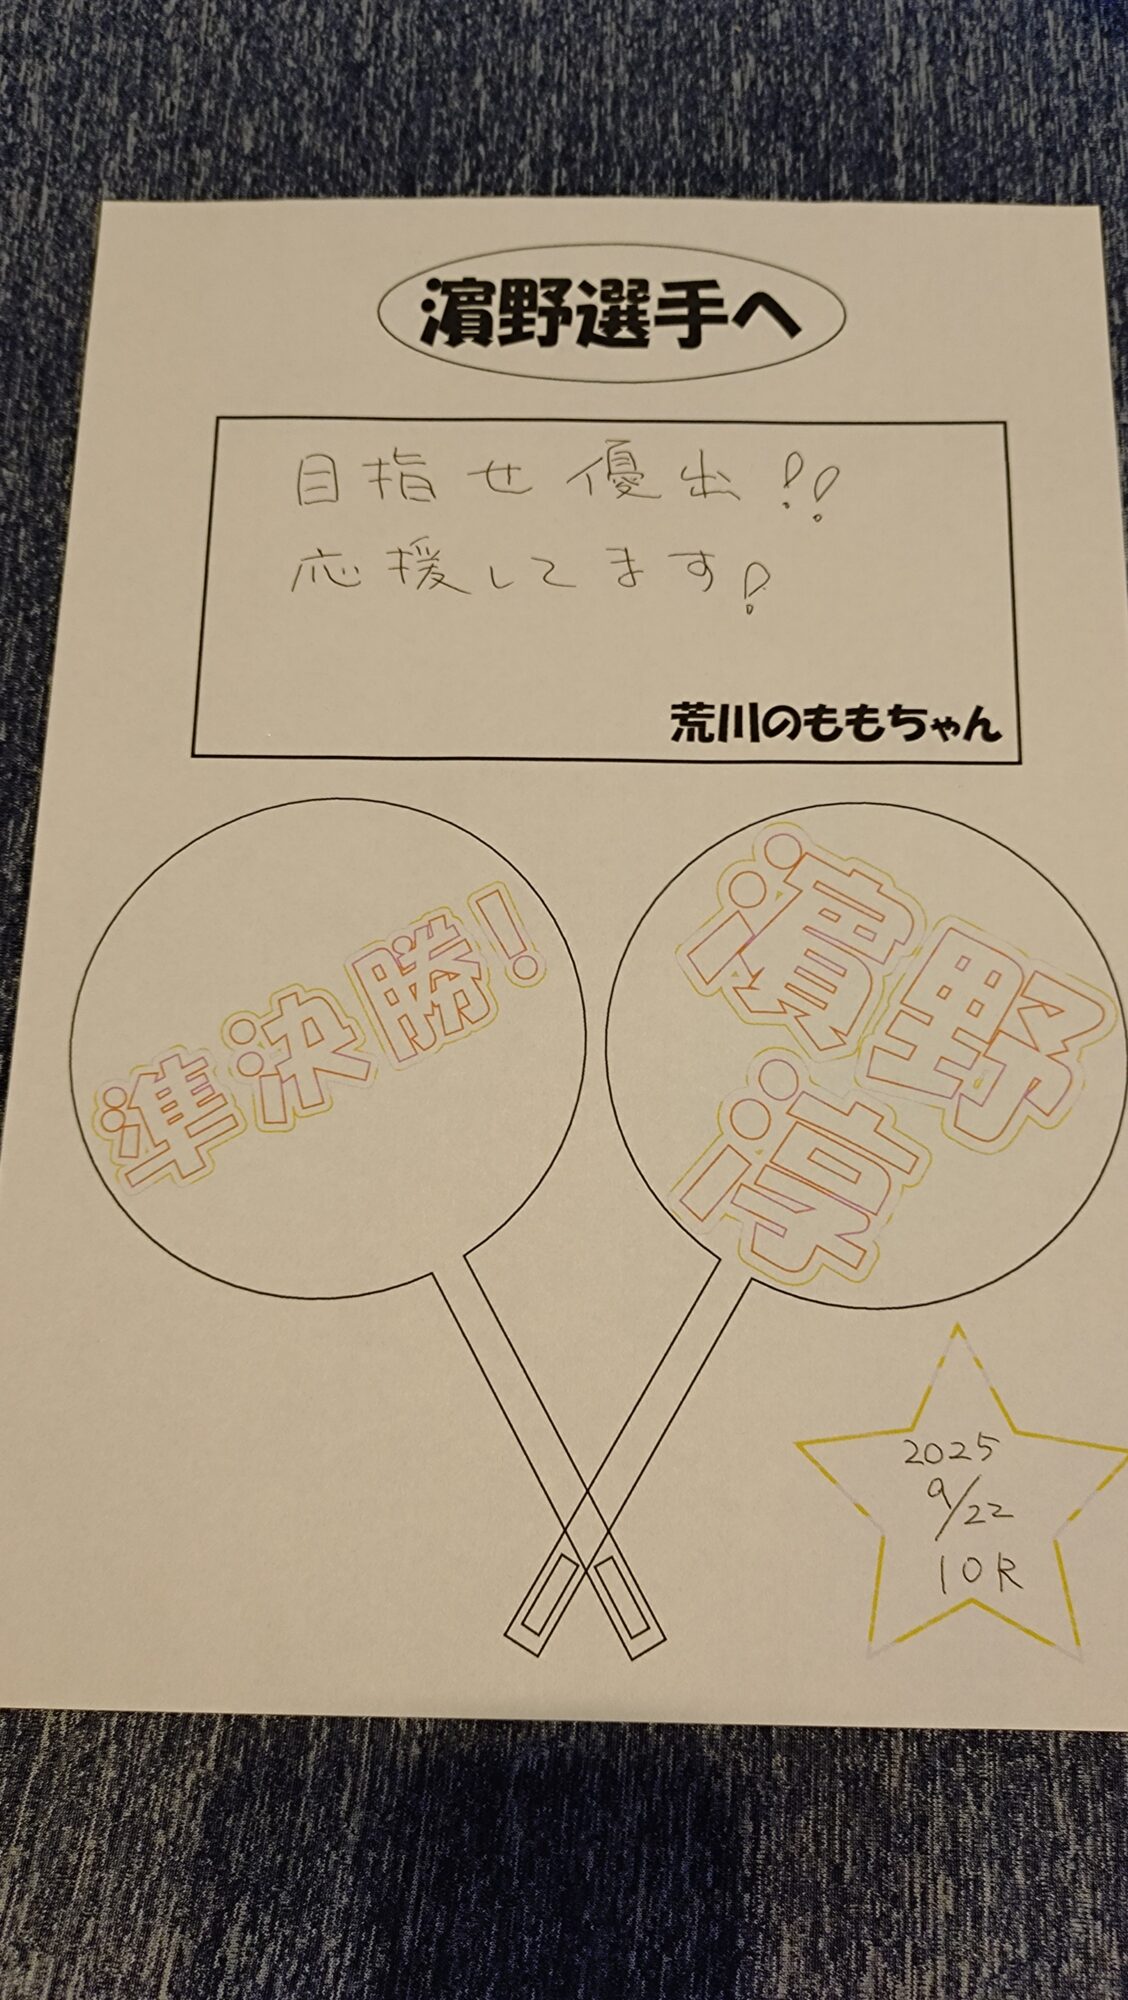 濵野選手へ
目指せ優出!!
応援してます!
荒川のももちゃん
準決勝!
濵野
淳
2025
9/22
10R